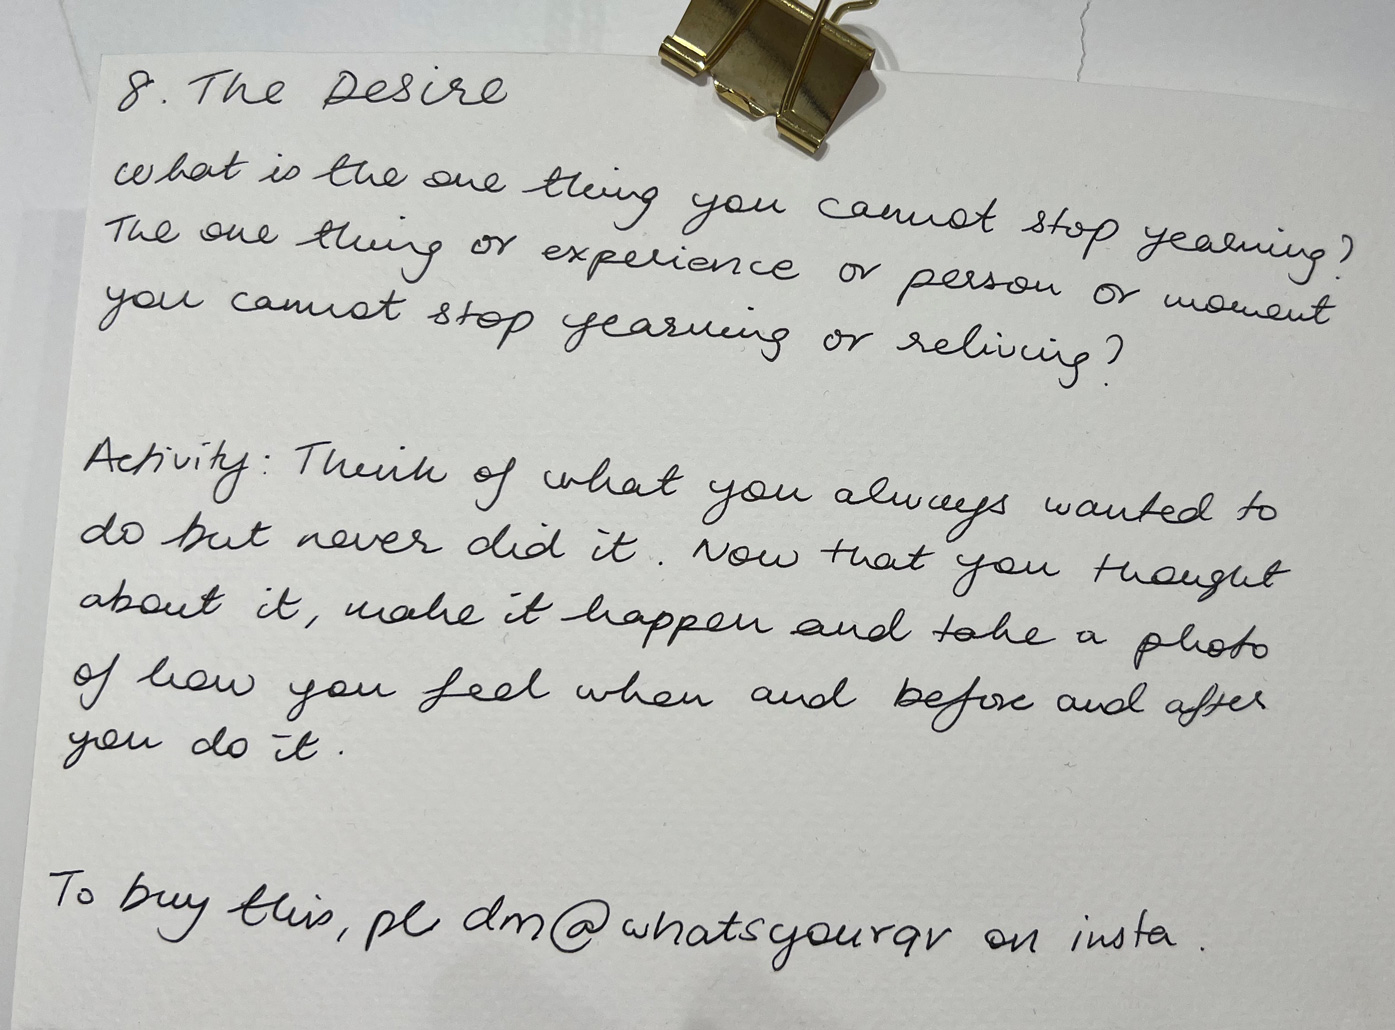 8. The Desire
What is the one thing you cannot stop yearning?
The one thing or experience or person or moment
you cannot stop yearning or reliving?
Activity: Think of what you always wanted to
do but never did it. Now that you thought
about it, make it happen and take a photo
of how you feel when and before and after
you do it.
To buy this, pl dm @whatsyourqr on insta.